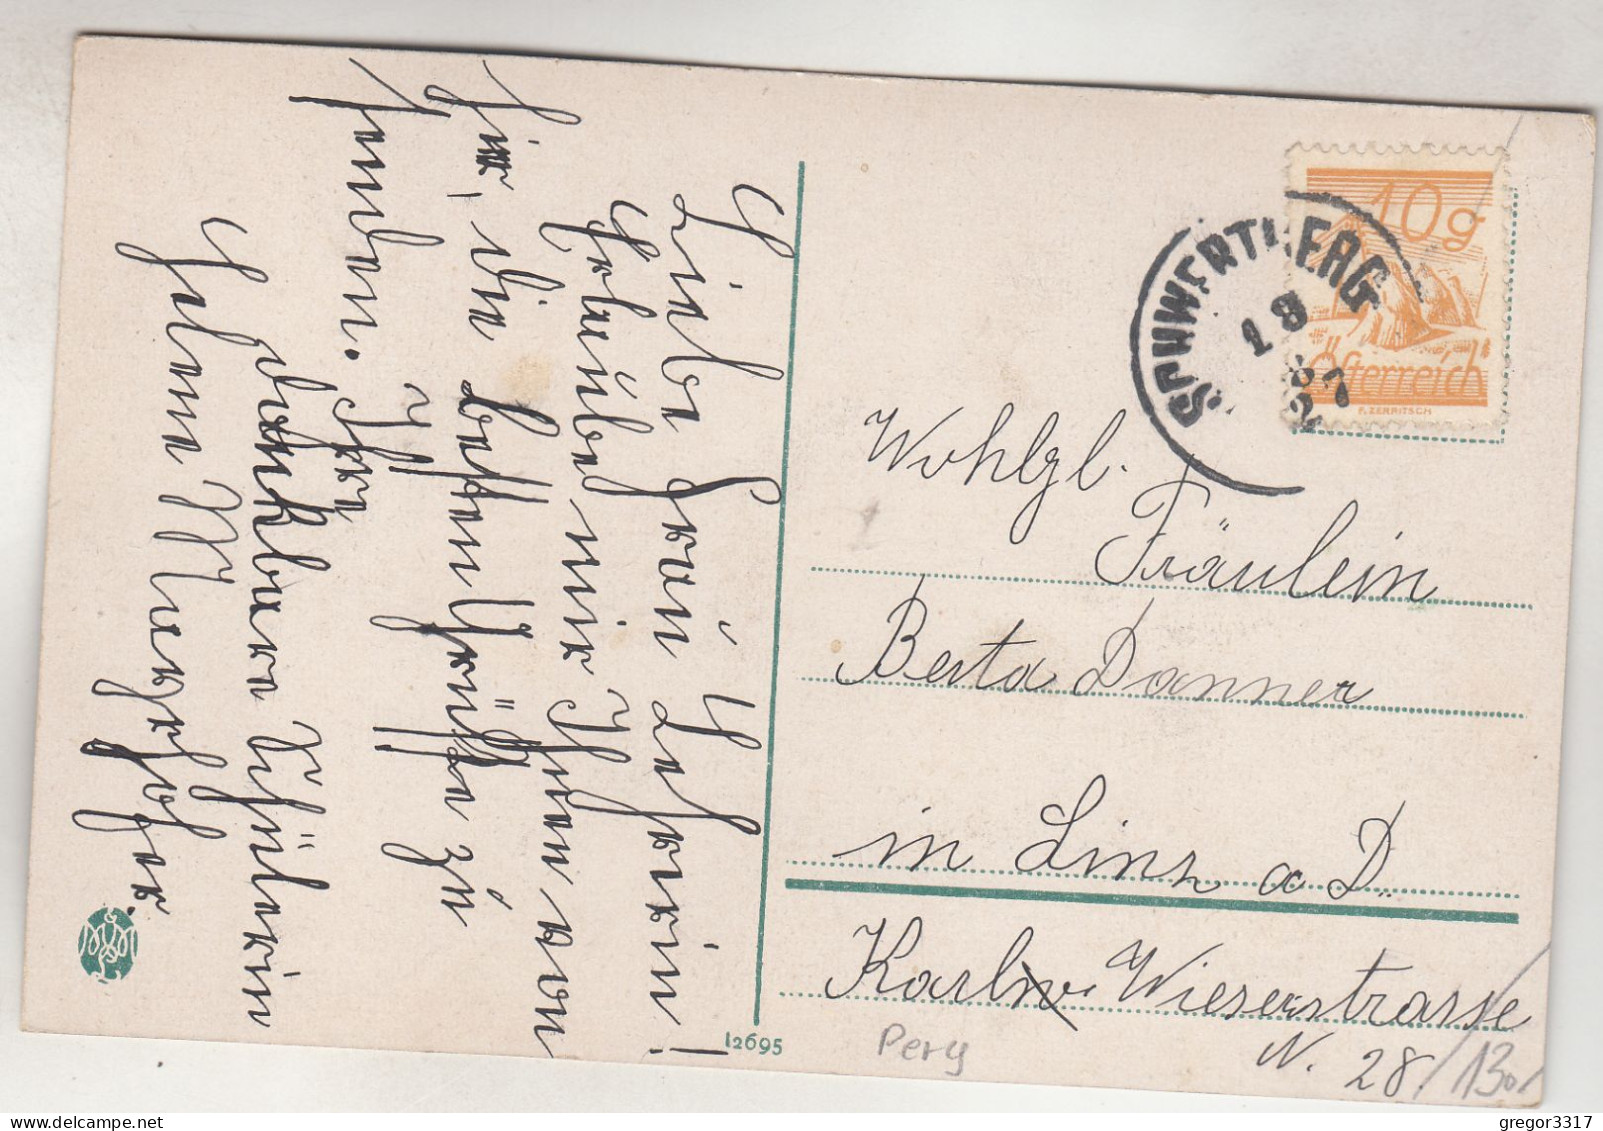 Liebe Fraú Lehrerin!
Erlaúbe mir Ihnen von
hir, die besten Grüße zú
senden. Ihre
dankbare Schülerin
Helene Mayrhofer.
10g
Österreich
F. ZERRITSCH
SCHWERTBERG
18
Wohlgl.
Fräulein
Berta Danner
in Linz a D.
Karl Wieserstrasse
N. 28/130/
Perg
12695
gregor3317